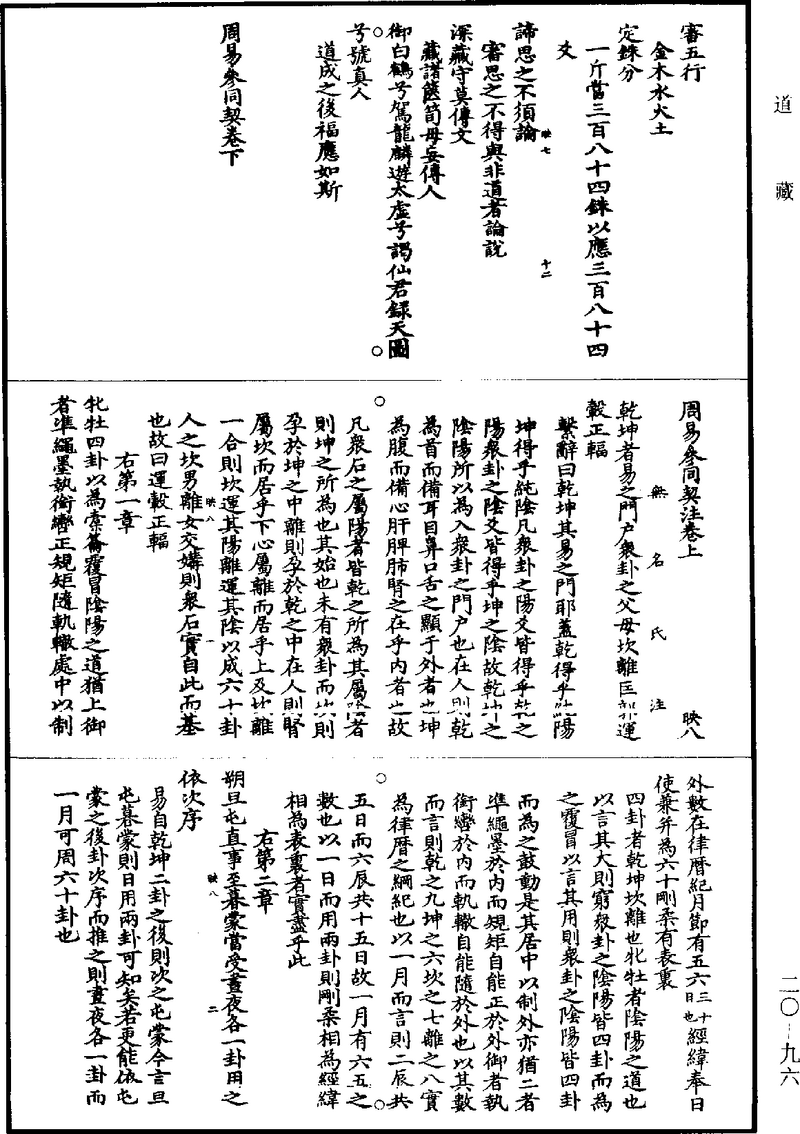 道藏
審五行
金木水火土
定銖分
一斤當三百八十四銖以應三百八十四
爻
諦思之不須論
審思之不得與非道者論說
深藏守莫傳文
藏諸篋笥毋妄傳人
御白鶴兮駕龍麟遊太虛兮謁仙君錄天圖
兮號真人
道成之後福應如斯
周易參同契卷下
映七
十二
周易參同契注卷上
映八
無名氏注
乾坤者易之門戶衆卦之父母坎離匡郭運
轂正輻
繫辭曰乾坤其易之門耶蓋乾得乎純陽
坤得乎純陰凡衆卦之陽爻皆得乎乾之
陽衆卦之陰爻皆得乎坤之陰故乾坤之
陰陽所以為入衆卦之門戶也在人則乾
為首而備耳目鼻口舌之顯于外者也坤
為腹而備心肝脾肺腎之在乎內者也故
凡衆石之屬陽者皆乾之所為其屬陰者
則坤之所為也其始也未有衆卦而坎則
孕於坤之中離則孕於乾之中在人則腎
屬坎而居乎下心屬離而居乎上及坎離
一合則坎運其陽離運其陰以成六十卦
人之坎男離女交媾則衆石實自此而基
也故曰運轂正輻
右第一章
牝牡四卦以為橐籥覆冒陰陽之道猶上御
者準繩墨執銜轡正規矩隨軌轍處中以制
映八
外數在律曆紀月節有五六三十日也經緯奉日
使兼并為六十剛柔有表裏
四卦者乾坤坎離也牝牡者陰陽之道也
以言其大則窮衆卦之陰陽皆四卦而為
之覆冒以言其用則衆卦之陰陽皆四卦
而為之鼓動是其居中以制外亦猶二者
準繩墨於內而規矩自能正於外御者執
銜轡於內而軌轍自能隨於外也以其數
而言則乾之九坤之六坎之七離之八實
為律曆之綱紀也以一月而言則二辰共
五日而六辰共十五日故一月有六五之
數也以一日而用兩卦則剛柔相為經緯
相為表裏者實盡乎此
右第二章
朔旦屯直事至暮蒙當受晝夜各一卦用之
依次序
易自乾坤二卦之後則次之屯蒙今言旦
屯暮蒙則日用兩卦可知矣若更能依屯
蒙之後卦次序而推之則晝夜各一卦而
一月可周六十卦也
映八
二
二〇-九六